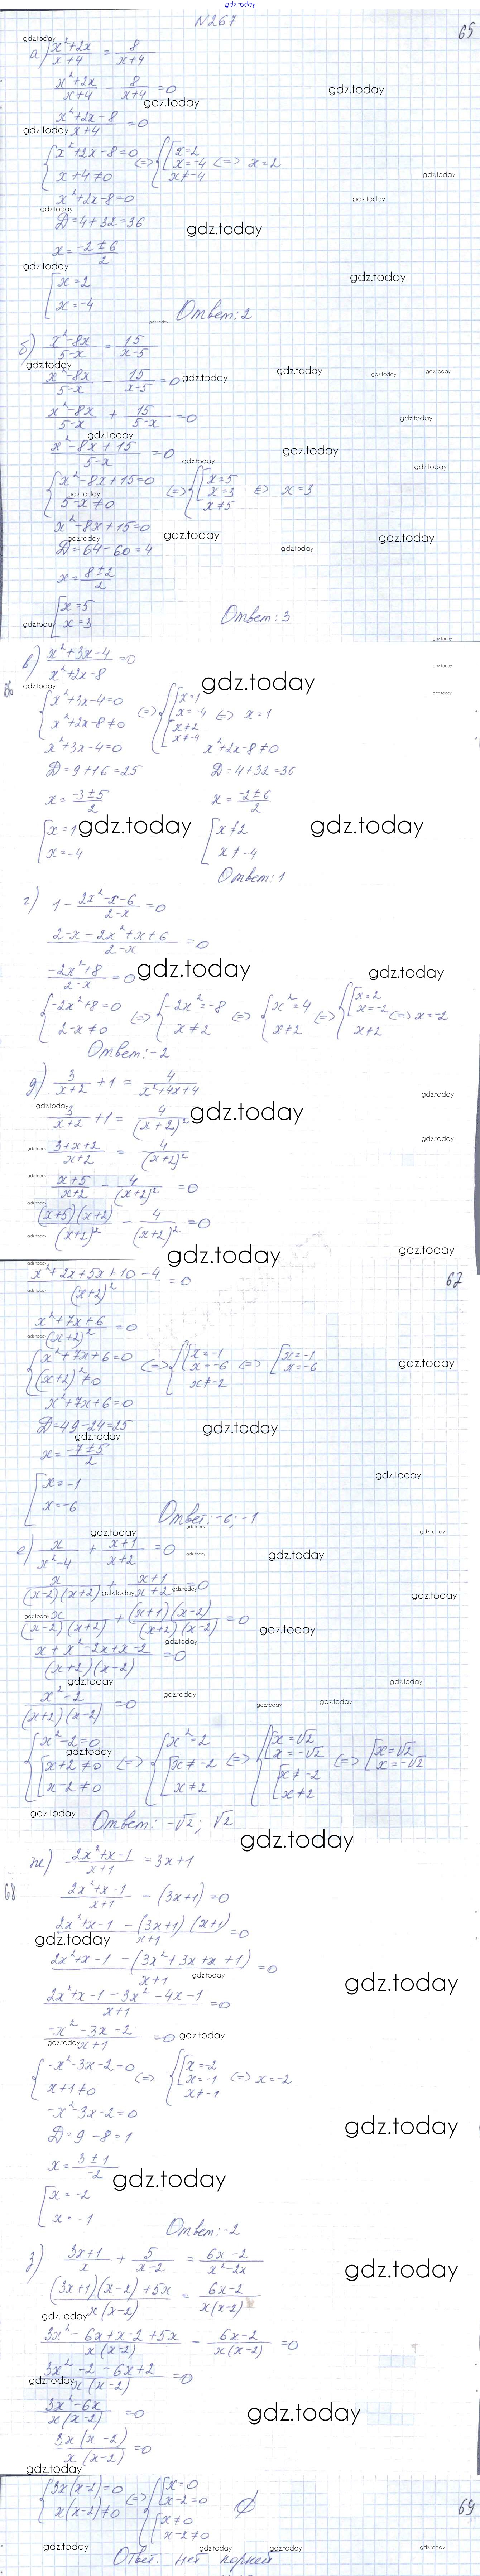 gdz.today
N267
65
а) (x²+2x)/(x+4) = 8/(x+4)
(x²+2x)/(x+4) - 8/(x+4) = 0
(x²+2x-8)/(x+4) = 0
{x²+2x-8=0 {[x=2
x+4≠0 (=) x=-4 (=) x=2
x≠-4
x²+2x-8=0
D=4+32=36
x=(-2±6)/2
[x=2
x=-4
Ответ: 2
б) (x²-8x)/(5-x) = 15/(x-5)
(x²-8x)/(5-x) - 15/(x-5) = 0
(x²-8x)/(5-x) + 15/(5-x) = 0
(x²-8x+15)/(5-x) = 0
{x²-8x+15=0 {[x=5
5-x≠0 (=) x=3 (=) x=3
x≠5
x²-8x+15=0
D=64-60=4
x=(8±2)/2
[x=5
x=3
Ответ: 3
66
в) (x²+3x-4)/(x²+2x-8) = 0
{x²+3x-4=0 {[x=1
x²+2x-8≠0 (=) x=-4 (=) x=1
[x≠2
x≠-4
x²+3x-4=0 x²+2x-8≠0
D=9+16=25 D=4+32=36
x=(-3±5)/2 x=(-2±6)/2
[x=1 [x≠2
x=-4 x≠-4
Ответ: 1
г) 1 - (2x²-x-6)/(2-x) = 0
(2-x-2x²+x+6)/(2-x) = 0
(-2x²+8)/(2-x) = 0
{-2x²+8=0 (=) {-2x²=-8 (=) {x²=4 (=) {[x=2
2-x≠0 x≠2 x≠2 x=-2 (=) x=-2
x≠2
Ответ: -2
д) 3/(x+2) + 1 = 4/(x²+4x+4)
3/(x+2) + 1 = 4/(x+2)²
(3+x+2)/(x+2) = 4/(x+2)²
(x+5)/(x+2) - 4/(x+2)² = 0
(x+5)(x+2)/(x+2)² - 4/(x+2)² = 0
67
(x²+2x+5x+10-4)/(x+2)² = 0
(x²+7x+6)/(x+2)² = 0
{x²+7x+6=0 (=) {[x=-1 (=) [x=-1
(x+2)²≠0 x=-6 x=-6
x≠-2
x²+7x+6=0
D=49-24=25
x=(-7±5)/2
[x=-1
x=-6
Ответ: -6; -1
е) x/(x²-4) + (x+1)/(x+2) = 0
x/((x-2)(x+2)) + (x+1)/(x+2) = 0
x/((x-2)(x+2)) + (x+1)(x-2)/((x+2)(x-2)) = 0
(x+x²-2x+x-2)/((x+2)(x-2)) = 0
(x²-2)/((x+2)(x-2)) = 0
{x²-2=0 {x²=2 {[x=√2
[x+2≠0 (=) [x≠-2 (=) x=-√2 (=) [x=√2
x-2≠0 x≠2 [x≠-2 x=-√2
x≠2
Ответ: -√2; √2
ж) (2x²+x-1)/(x+1) = 3x+1
68
(2x²+x-1)/(x+1) - (3x+1) = 0
(2x²+x-1-(3x+1)(x+1))/(x+1) = 0
(2x²+x-1-(3x²+3x+x+1))/(x+1) = 0
(2x²+x-1-3x²-4x-1)/(x+1) = 0
(-x²-3x-2)/(x+1) = 0
{-x²-3x-2=0 (=) {[x=-2
x+1≠0 x=-1 (=) x=-2
x≠-1
-x²-3x-2=0
D=9-8=1
x=(3±1)/(-2)
[x=-2
x=-1
Ответ: -2
з) (3x+1)/x + 5/(x-2) = (6x-2)/(x²-2x)
((3x+1)(x-2)+5x)/(x(x-2)) = (6x-2)/(x(x-2))
(3x²-6x+x-2+5x)/(x(x-2)) - (6x-2)/(x(x-2)) = 0
(3x²-2-6x+2)/(x(x-2)) = 0
(3x²-6x)/(x(x-2)) = 0
3x(x-2)/(x(x-2)) = 0
69
{3x(x-2)=0 (=) {[x=0
x(x-2)≠0 x-2=0 ∅
[x≠0
x-2≠0
Ответ: нет корней